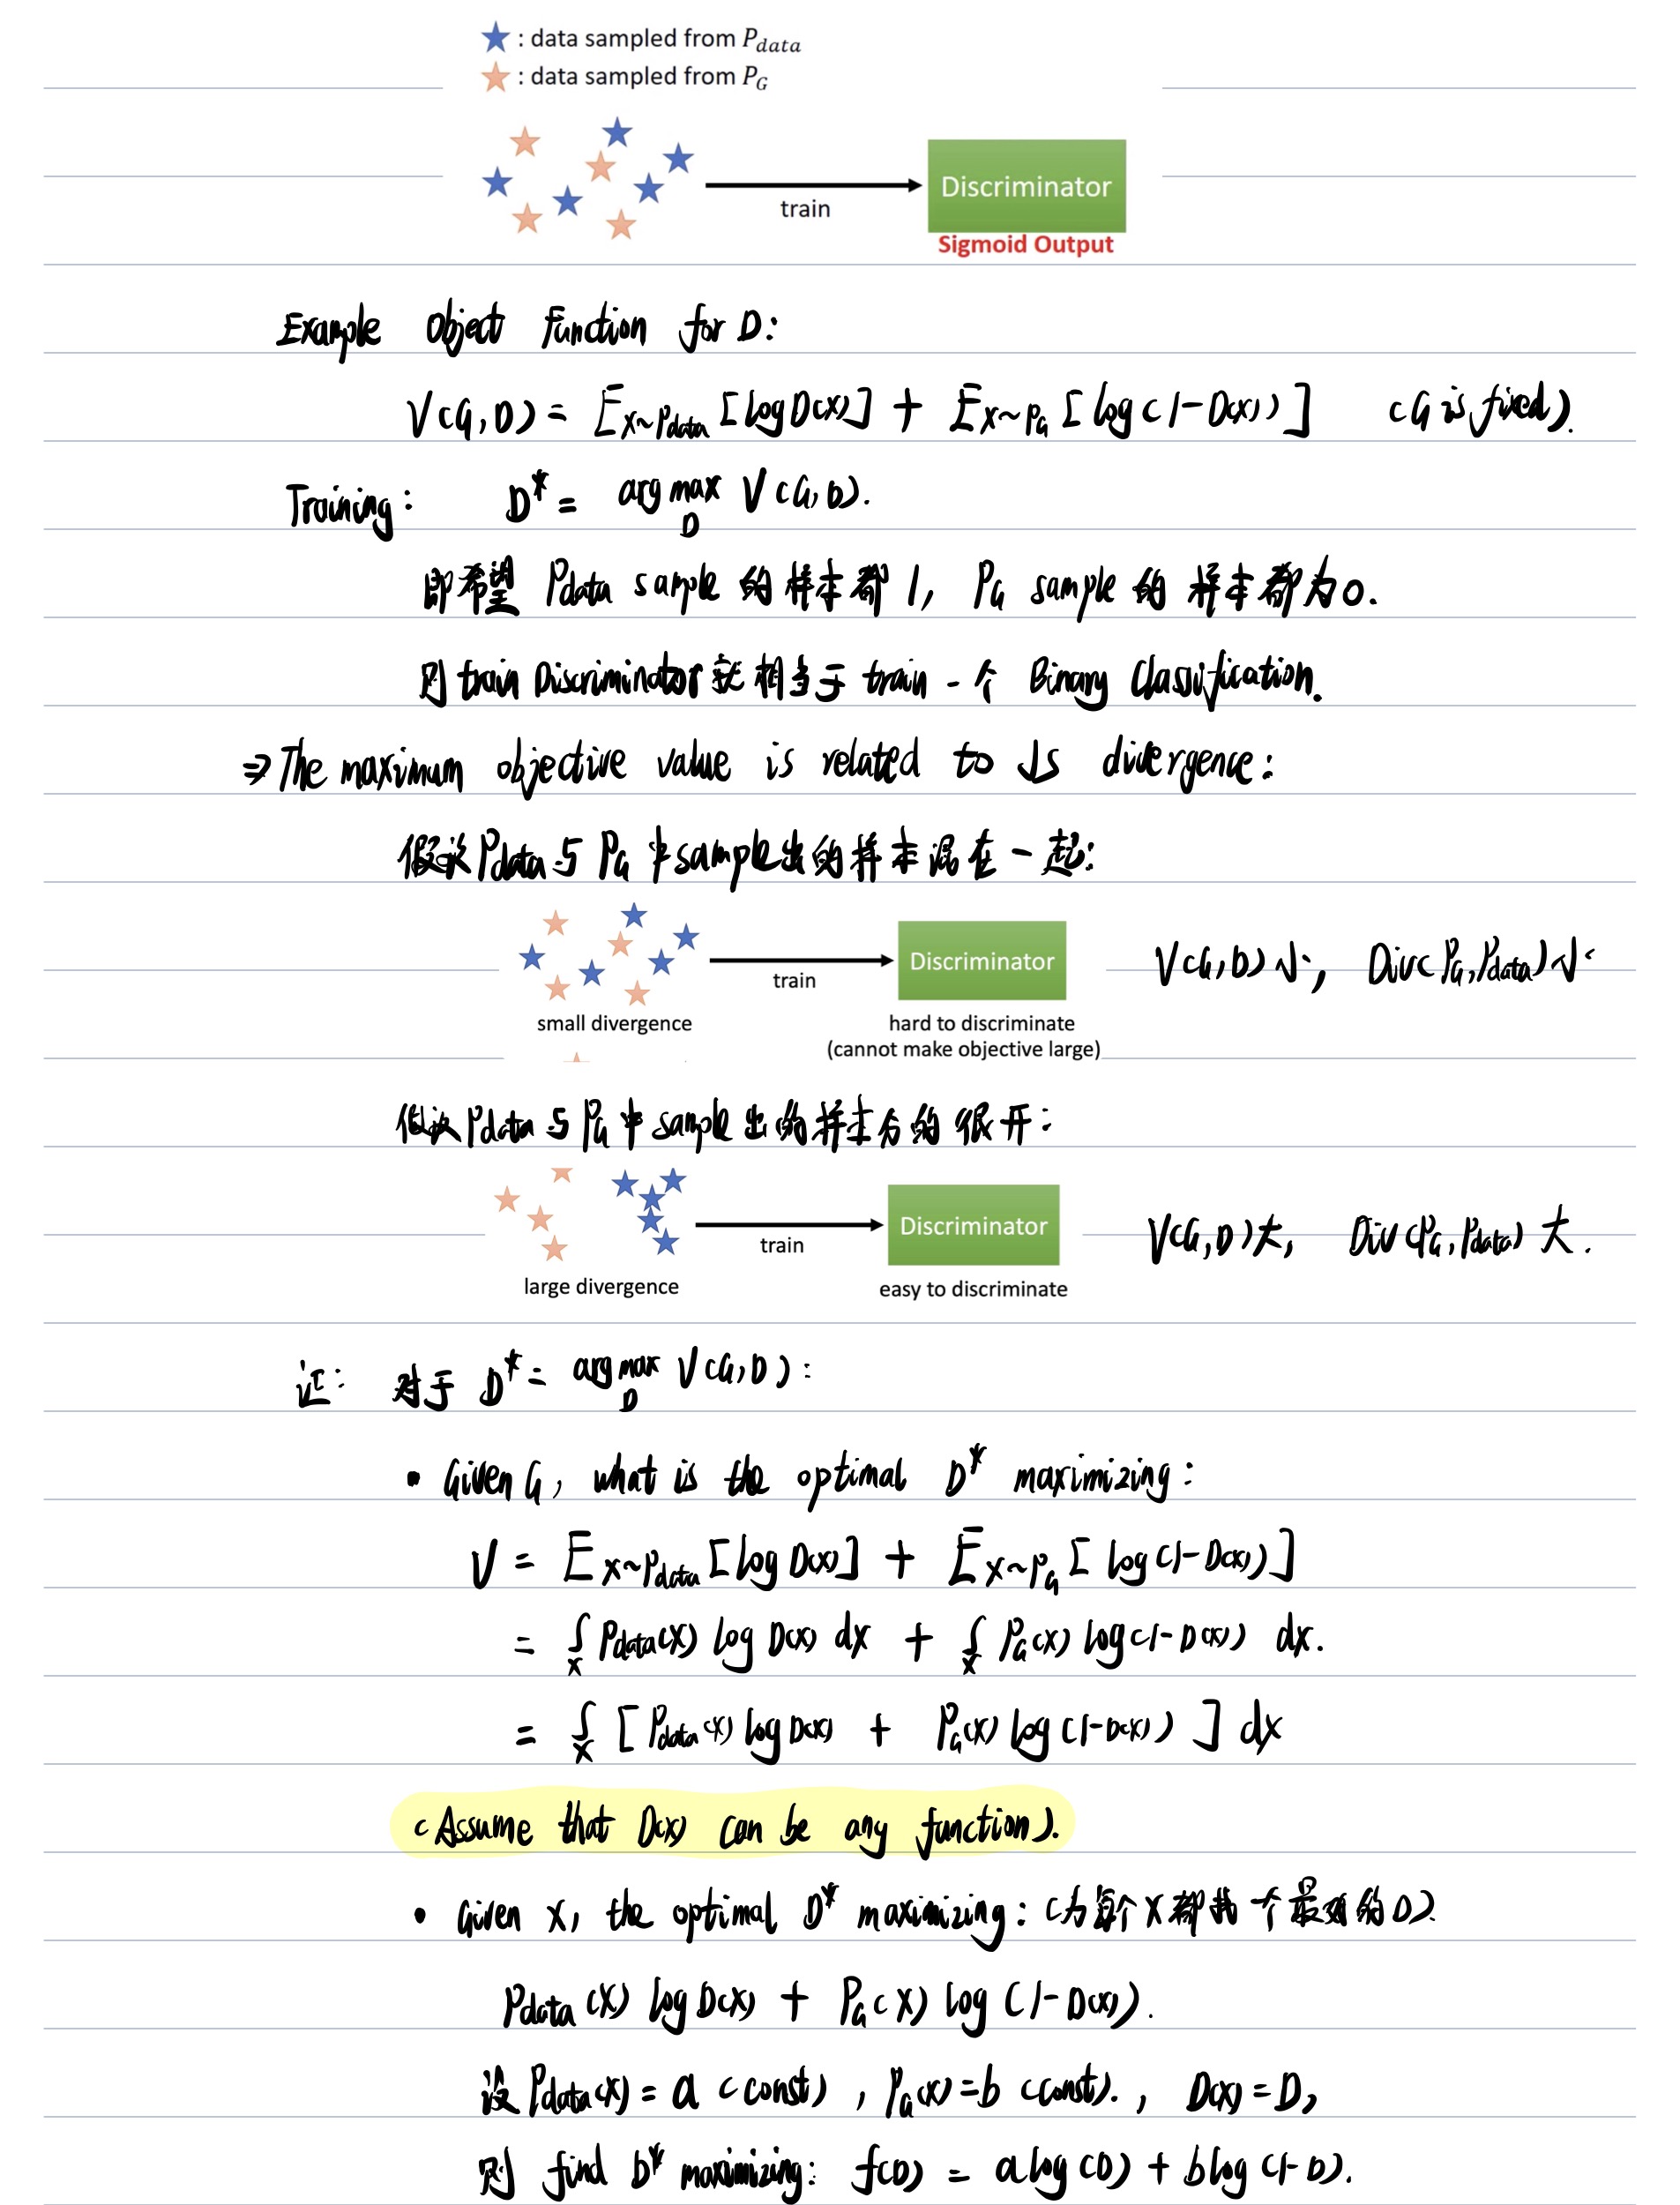 ★ : data sampled from P_data
★ : data sampled from P_G
train
Discriminator
Sigmoid Output
Example Object Function for D:
V(G,D) = E_{x~P_data}[log D(x)] + E_{x~P_G}[log(1-D(x))] (G is fixed).
Training: D* = arg max_D V(G,D).
即希望 P_data sample 的样本都 1, P_G sample 的样本都为 0.
则 train Discriminator 就相当于 train 一个 Binary Classification.
⇒ The maximum objective value is related to JS divergence:
假设 P_data 与 P_G 中 sample 出的样本混在一起:
train
Discriminator
V(G,D) 小, Div(P_G, P_data) 小
small divergence
hard to discriminate
(cannot make objective large)
假设 P_data 与 P_G 中 sample 出的样本分的很开:
train
Discriminator
V(G,D) 大, Div(P_G, P_data) 大.
large divergence
easy to discriminate
证: 对于 D* = arg max_D V(G,D):
• Given G, what is the optimal D* maximizing:
V = E_{x~P_data}[log D(x)] + E_{x~P_G}[log(1-D(x))]
= ∫_x P_data(x) log D(x) dx + ∫_x P_G(x) log(1-D(x)) dx.
= ∫_x [P_data(x) log D(x) + P_G(x) log(1-D(x))] dx
(Assume that D(x) can be any function).
• Given x, the optimal D* maximizing: (为每个 x 都找一个最对的 D)
P_data(x) log D(x) + P_G(x) log(1-D(x)).
设 P_data(x) = a (const), P_G(x) = b (const)., D(x) = D,
则 find D* maximizing: f(D) = a log(D) + b log(1-D).